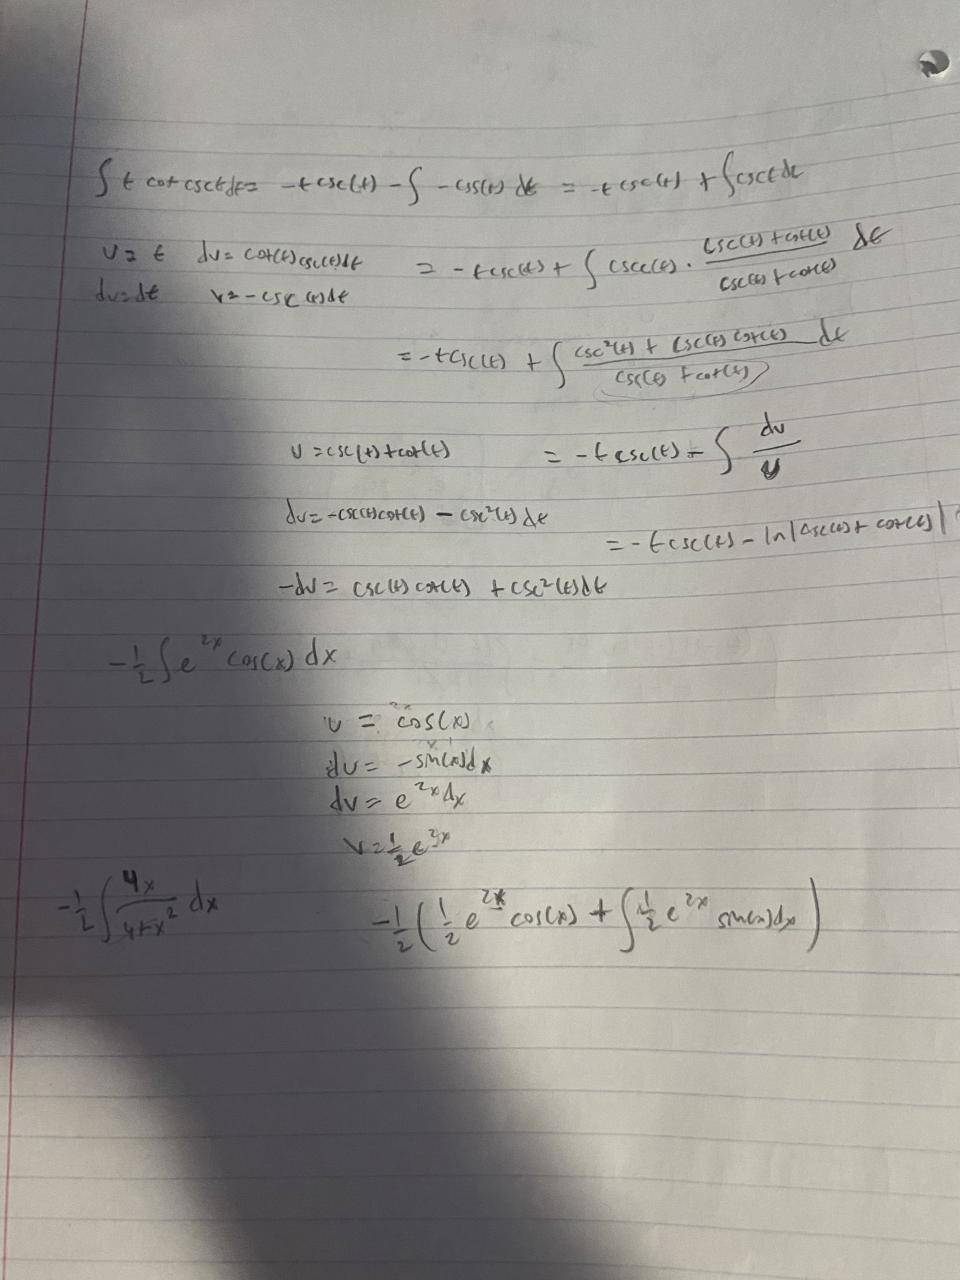 ∫ t cot csct dt = -t csc(t) - ∫ -csc(t) dt = -t csc(t) + ∫ csct dt
u = t dv = cot(t) csc(t) dt = -t csc(t) + ∫ csc(t) · (csc(t) + cot(t))/(csc(t) + cot(t)) dt
du = dt v = -csc(t) dt
= -t csc(t) + ∫ (csc²(t) + csc(t) cot(t))/(csc(t) + cot(t)) dt
u = csc(t) + cot(t) = -t csc(t) - ∫ du/u
du = -csc(t) cot(t) - csc²(t) dt
= -t csc(t) - ln|csc(t) + cot(t)|
-du = csc(t) cot(t) + csc²(t) dt
-1/2 ∫ e^2x cos(x) dx
u = cos(x)
du = -sin(x) dx
dv = e^2x dx
v = 1/2 e^2x
-1/2 ∫ 4x/(4+x²) dx
-1/2 (1/2 e^2x cos(x) + ∫ 1/2 e^2x sin(x) dx)